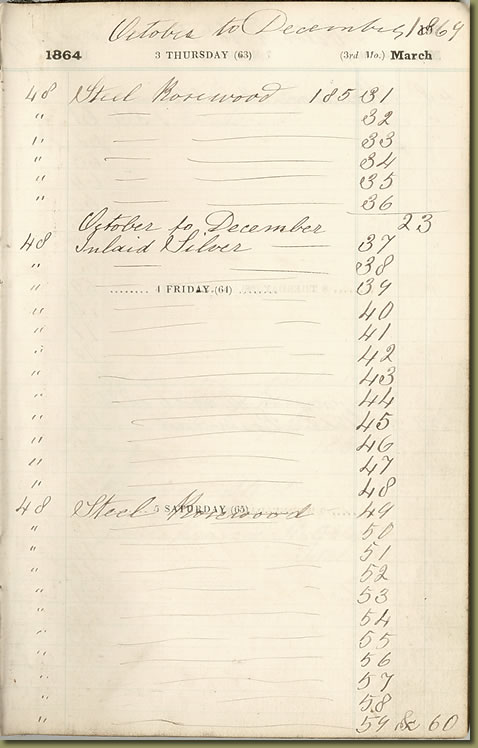 October to December, 1864
1864 3 THURSDAY (63) (3rd Mo.) March
48 Steel Rosewood 185 31
" — — 32
" — — 33
" — — 34
" — — 35
" — — 36
October to December 23
48 Inlaid Silver — 37
" — — 38
" ........ 4 FRIDAY (64) ........ 39
" — — 40
" — — 41
" — — 42
" — — 43
" — — 44
" — — 45
" — — 46
" — — 47
" — — 48
48 Steel Rosewood 49
5 SATURDAY (65)
" — — 50
" — — 51
" — — 52
" — — 53
" — — 54
" — — 55
" — — 56
" — — 57
" — — 58
" — — 59 & 60